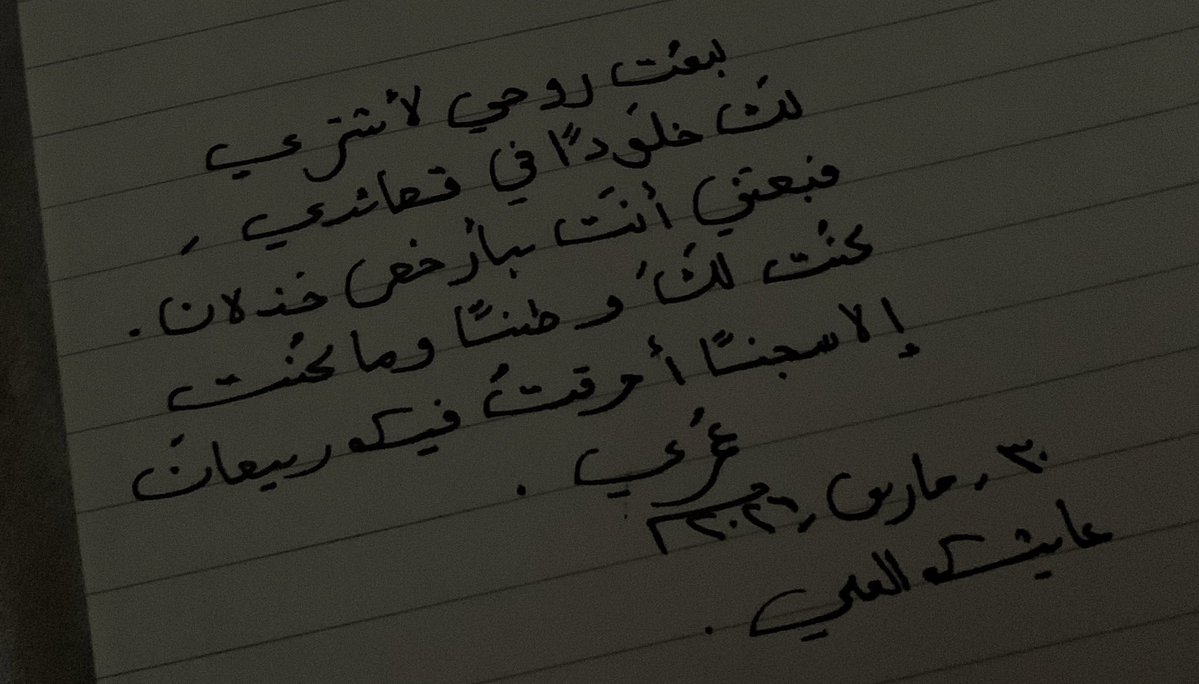 بعتُ روحي لأشتري
لكَ خلودًا في قصائدي ,
فبعتني أنتَ بأرخص خذلان .
كنتُ لكَ وطنًا وما كنتَ
إلا سجنًا أحرقتُ فيه ربيعانَ
عُمُري .
٣٠ , مارس , ٢٠٢٦
عايشه العلي .